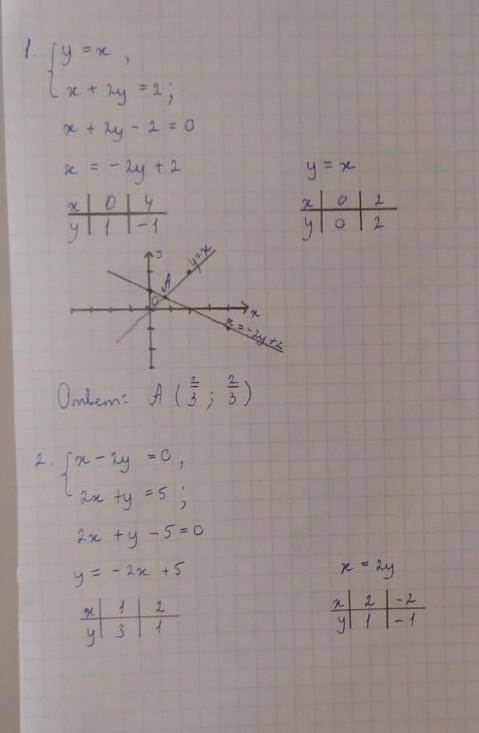 1. { y = x ,
x + 2y = 2 ;
x + 2y - 2 = 0
x = -2y + 2
y = x
x | 0 | 4
y | 1 | -1
x | 0 | 2
y | 0 | 2
A
y=x
0
x
x = -2y+2
Ответ: A ( 2/3 ; 2/3 )
2. { x - 2y = 0 ,
2x + y = 5 ;
2x + y - 5 = 0
y = -2x + 5
x = 2y
x | 1 | 2
y | 3 | 1
x | 2 | -2
y | 1 | -1